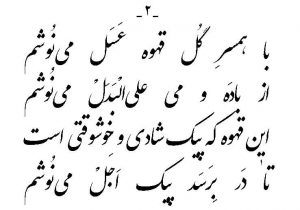 -۲-
با همسرِ گُل قهوه عَسَل می‌نُوشم
از بادَه و می علی‌البَدَلْ می‌نُوشم
این قهوه که پیک شادی و خوشوقتی است
تا دَر بِرَسَد پیک اَجَلْ می‌نُوشم